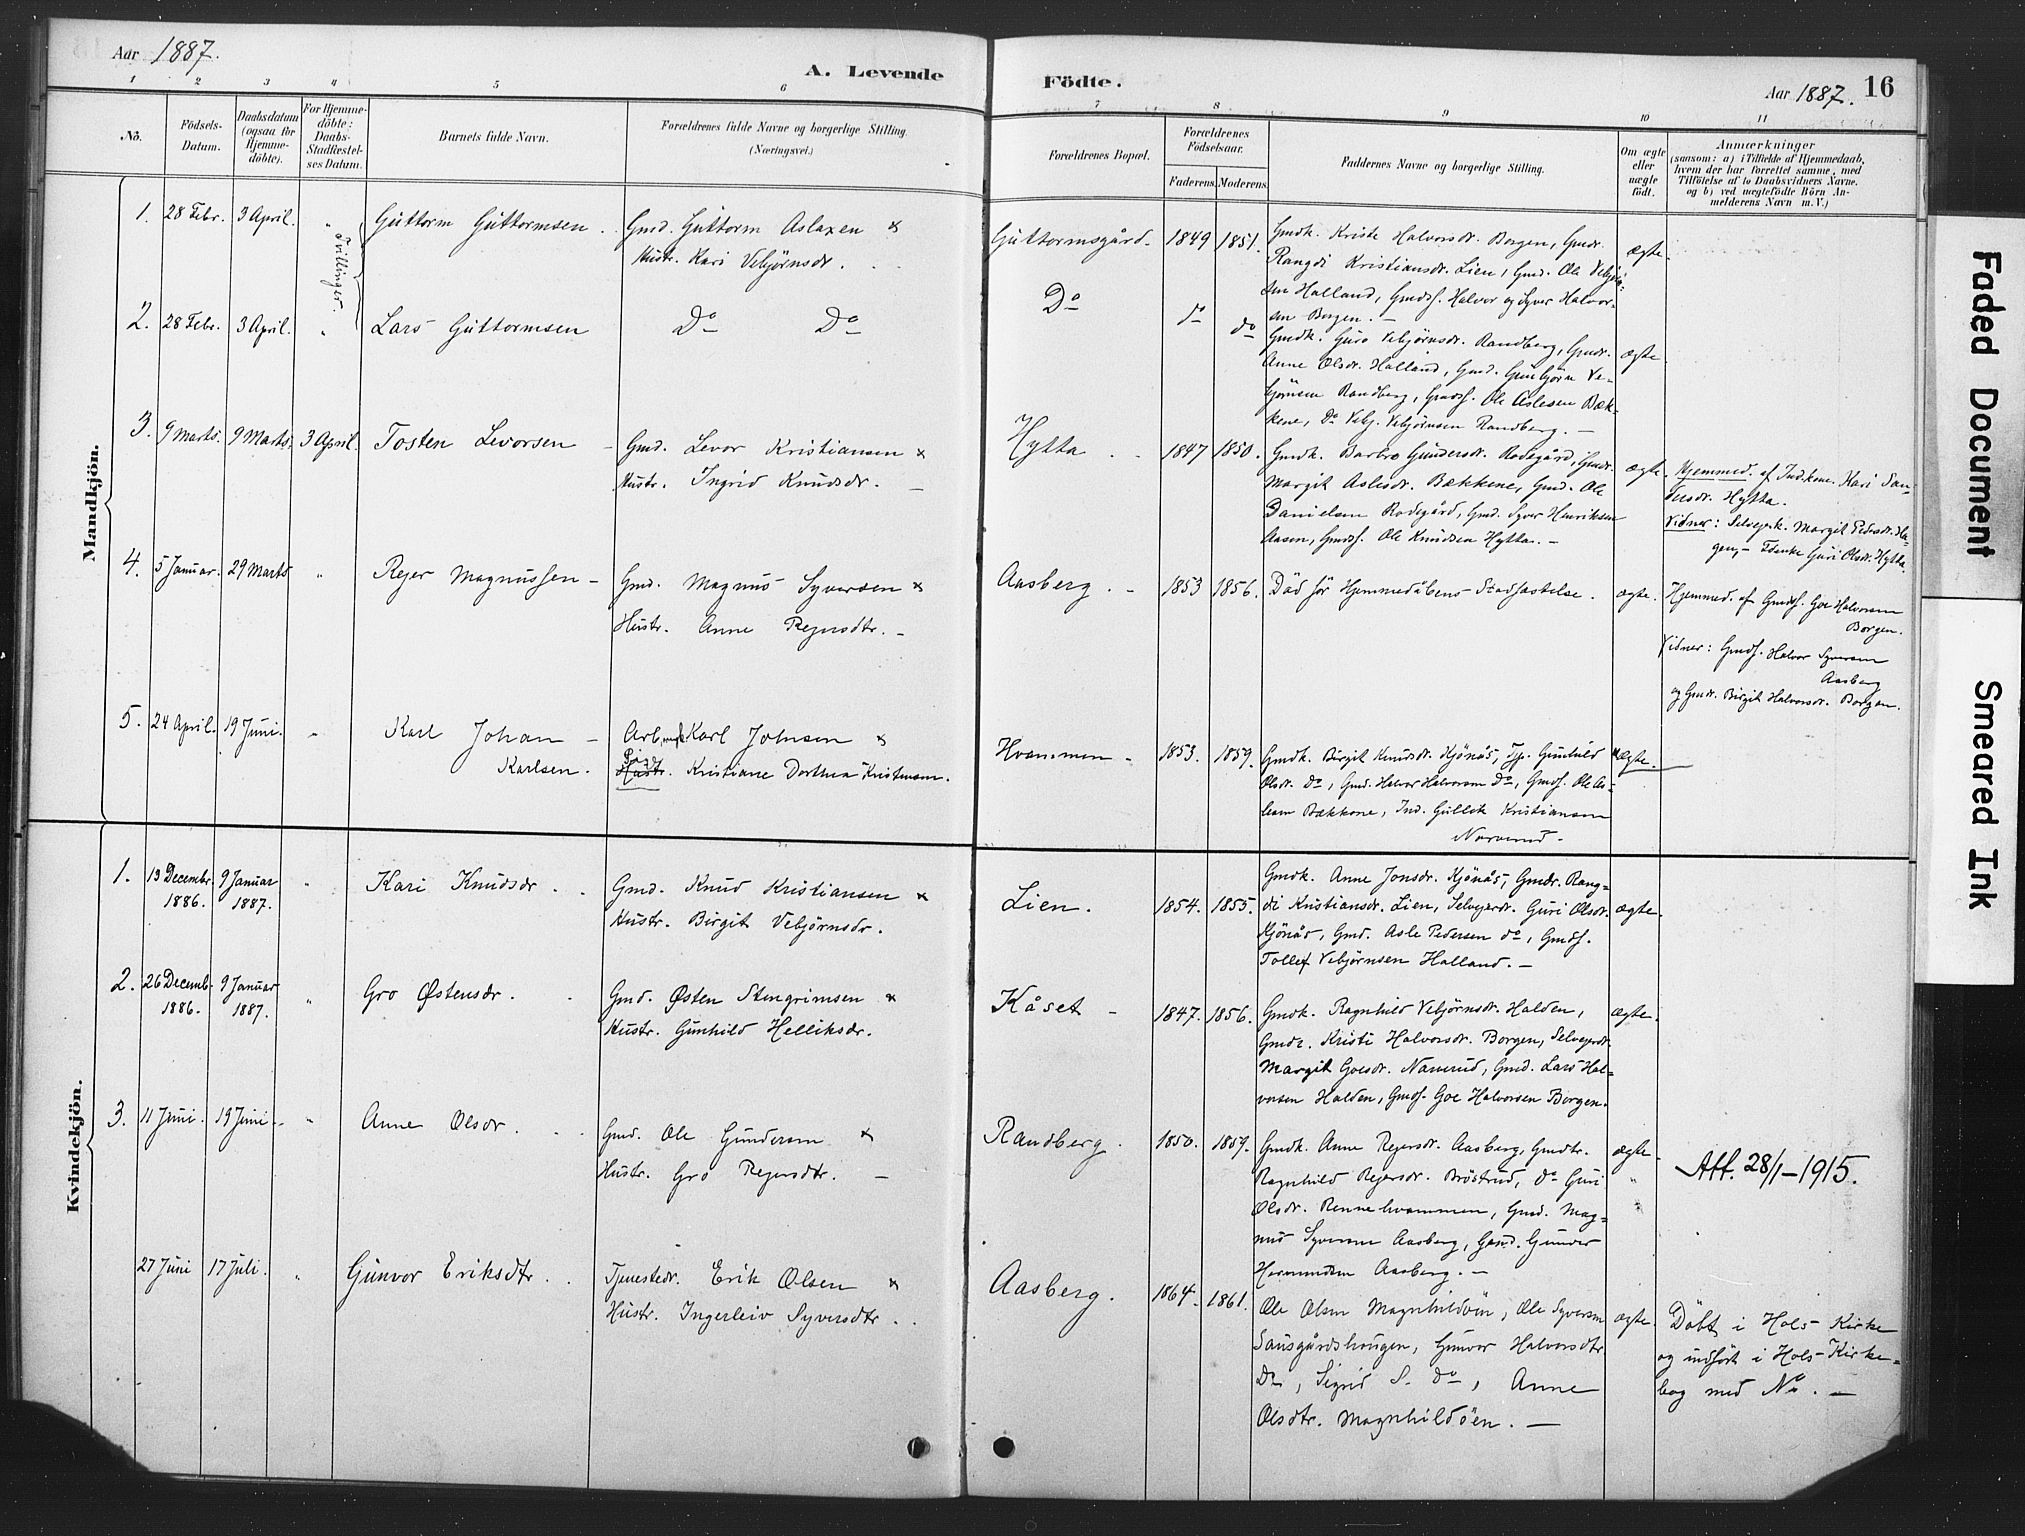 Aar 1887.
A. Levende
Födte.
Aar 1887.
16
1 2 3 4 5 6 7 8 9 10 11
Nö.
Födsels-
Datum.
Daabsdatum
(ogsaa for
Hjemme-
döbte).
For Hjemme-
döbte:
Daabs-
Stadfæstel-
ses Datum.
Barnets fulde Navn.
Forældrenes fulde Navne og borgerlige Stilling.
(Næringsvei.)
Forældrenes Bopæl.
Forældrenes
Födselsaar.
Faderens. Moderens.
Faddernes Navne og borgerlige Stilling.
Om ægte
eller
uægte
födt.
Anmærkninger
(saasom: a) i Tilfælde af Hjemmedaab,
hvem der har forrettet samme, med
Tilföielse af to Daabsvidners Navne,
og b) ved uægtefödte Börn An-
melderens Navn m. V.)
Mandkjön.
1. 28 Febr. 3 April. " Guttorm Guttormsen.
Tvillinger.
Gmd. Guttorm Aslaxen &
Hustr. Kari Vebjørnsdr.
Guttormsgård. 1849 1851.
Gmdk. Kristi Halvorsdr. Borgen, Gmdr.
Rangdi Kristiansdr. Lien, Gmd. Ole Vebjörn-
sen Halland, Gmdf. Halvor og Syver Halvor-
sen Borgen. —
ægte.
2. 28 Febr. 3 April. " Lars Guttormsen
Do Do
Do do do
Gmdk. Guro Vebjørnsdr. Randberg, Gmdr.
Anne Olsdr. Halland, Gmd. Gunbjørn Ve-
bjørnsen Randberg, Gmdf. Ole Aslesen Bæk-
kene, Do Vebj. Vebjörnsen Randberg. —
ægte.
3. 9 Marts. 9 Marts. 3 April. Tosten Levorsen
Gmd. Levor Kristiansen &
Hustr. Ingrid Knudsdr.
Hytta 1847 1850.
Gmdk. Barbro Gundersdr. Rodegård, Gmdr.
Margit Aslesdr. Bækkene, Gmd. Ole
Danielsen Rodegård, Gmd. Syver Henriksen
Aasen, Gmdf. Ole Knudsen Hytta. —
ægte.
Hjemmed. af Indkone Kari San-
desdr. Hytta.
Vidner: Selvejerk. Margit Pedersdr. Ha-
gen, – Fdenke Guri Olsdr. Hytta.
4. 5 Januar. 29 Marts " Rejer Magnussen
Gmd. Magnus Syversen &
Hustr. Anne Rejersdtr.
Aasberg. 1853 1856.
Död før Hjemmedåbens Stadfæstelse.
ægte.
Hjemmed. af Gmdf. Goe Halvorsen
Borgen.
Vidner: Gmdf. Halvor Syversen
Aasberg
og Gmdr. Birgit Halvorsdr. Borgen.
5. 24 April. 19 Juni. " Karl Johan
Karlsen.
Arb. Karl Johnsen &
Pige
Hustr. Kristiane Dorthea Kristensen.
Hvammen 1853. 1859.
Gmdk. Birgit Knudsdr. Kjönås, Tjp. Gunhild
Olsdr. do, Gmd. Halvor Halvorsen do, Gmdf. Ole As-
lesen Bækkene, Ind. Gullik Kristiansen
Narverud.
uægte.
Kvindekjön.
1. 13 Decembr. 9 Januar " Kari Knudsdr.
1886. 1887.
Gmd. Knud Kristiansen &
Hustr. Birgit Vebjørnsdr.
Lien. 1854. 1855.
Gmdk. Anne Jonsdr. Kjönås, Gmdr. Rang-
di Kristiansdr. Lien, Selvejerdr. Guri Olsdr.
Kjönås, Gmd. Asle Pedersen do, Gmdf.
Tollef Vebjörnsen Halland. —
ægte.
2. 26 Decemb. 9 Januar " Gro Østensdr.
1886. 1887.
Gmd. Østen Stengrimsen &
Hustr. Gunhild Helliksdr.
Kåset 1847. 1856.
Gmdk. Ragnhild Vebjørnsdr. Halden,
Gmdr. Kristi Halvorsdr. Borgen, Selvejerdr.
Margit Goesdr. Narverud, Gmd. Lars Hal-
vorsen Halden, Gmdf. Goe Halvorsen Borgen.
ægte.
3. 11 Juni. 19 Juni. " Anne Olsdr.
Gmd. Ole Gundersen &
Hustr. Gro Rejersdtr. —
Randberg. 1850. 1859.
Gmdk. Anne Rejersdr. Aasberg, Gmdtr.
Ragnhild Rejersdr. Bröstrud, do Guri
Olsdr. Rennehvammen, Gmd. Mag-
nus Syversen Aasberg, Gmd. Gunder
Hermundsen Aasberg. —
ægte.
Att. 28/1–1915.
27 Juni 17 Juli. " Gunvor Eriksdtr.
Tjenestedr. Erik Olsen &
Hustr. Ingerleiv Syversdtr.
Aasberg. 1864. 1861.
Ole Olsen Magnhildöen, Ole Syversen
Sausgårdshougen, Gunvor Halvorsdtr
Do, Sigrid S. do, Anne
Olsdtr. Magnhildöen. —
ægte.
Döbt i Hols Kirke
og indført i Hols Kirke-
bog med No. —
Faded Document
Smeared Ink